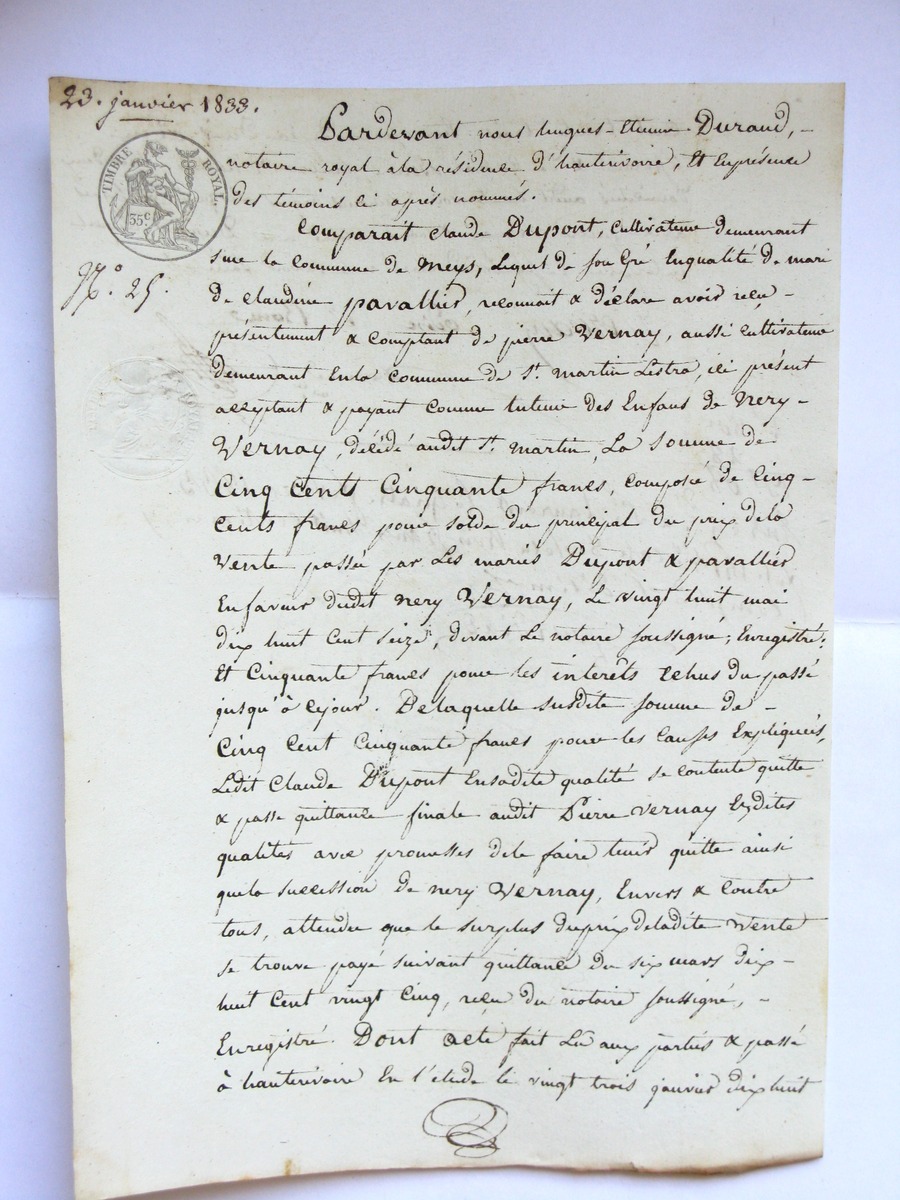 23. janvier 1833.
TIMBRE ROYAL.
35c
N.° 25.
Pardevant nous hugues-Etienne Durand, -
notaire royal à la résidence d'hauterivoire, Et En présence
des témoins ci après nommés.
Comparait claude Dupont, Cultivateur demeurant
sur la Commune de Meys, Lequel de son Gré En qualité de mari
de claudine pavallier, reconnait & déclare avoir reçu -
présentement & comptant de pierre Vernay, aussi Cultivateur
demeurant En la Commune de St. Martin Lestra, ici présent
acceptant & payant Comme tuteur des Enfans de Nery-
Vernay, décédé audit St. Martin, La Somme de
Cinq Cents Cinquante francs, Composée de Cinq-
Cents francs pour solde du principal du prix de la
Vente passée par Les mariés Dupont & pavallier
En faveur dudit nery Vernay, Le vingt huit mai
dix huit Cent seize, devant Le notaire soussigné; Enregistré;
Et Cinquante francs pour les interêts Echus du passé
jusqu'à ce jour. De laquelle susdite somme de -
Cinq Cent Cinquante francs pour les Causes Expliquées,
Ledit Claude Dupont En sadite qualité se Contente quitte
& passe quittance finale audit Pierre Vernay Esdites
qualités avec promesses de le faire tenir quitte ainsi
que la succession de nery Vernay, Envers & Contre
tous, attendu que le surplus du prix de ladite Vente
se trouve payé suivant quittance du six mars dix-
huit Cent vingt Cinq, reçu du notaire soussigné, -
Enregistré. Dont acte fait Lu aux parties & passé
à hauterivoire En l'étude le vingt trois janvier dix huit